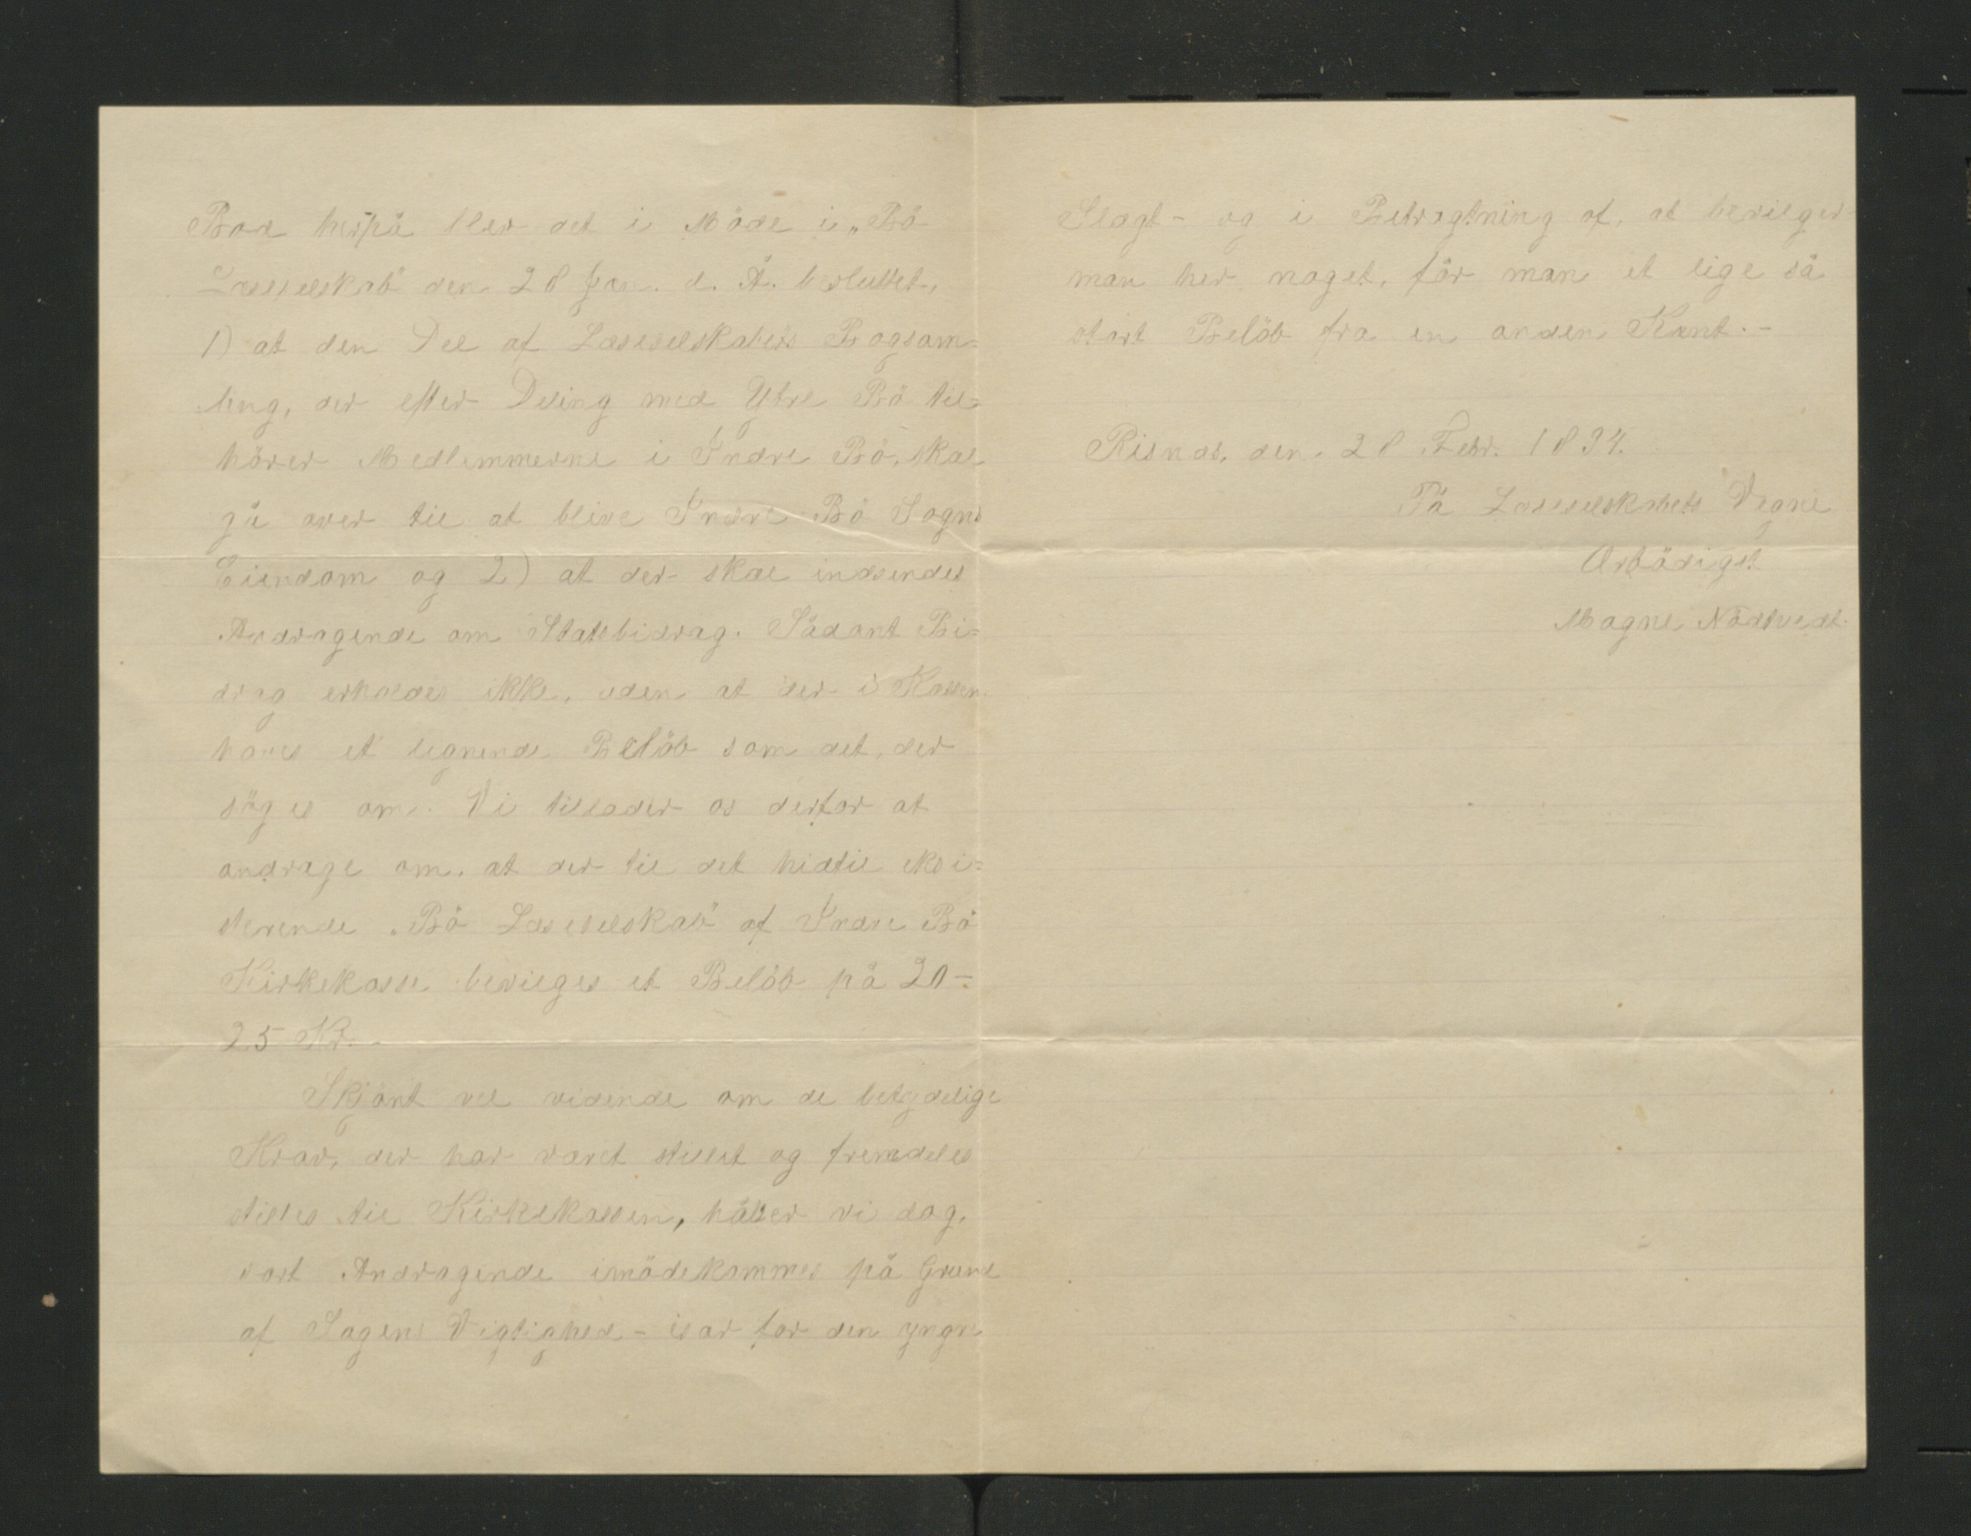 Bod herpå blev det i Möde i „Bö
Læseselskab" den 28 Jan. d. A. besluttet,
1) at den Del af Læseselskabets Bogsam=
ling, der efter Deling med Ytre Bö til=
hörer Medlemmerne i Indre Bö, skal
gå over til at blive Indre Bö Sogns
Eiendom og 2) at der skal indsendes
Andragende om Statsbidrag. Sådant Bi=
drag erholdes ikke, uden at der i Kassen
haves et lignende Belöb som det, der
söges om. Vi tillader os derfor at
andrage om, at der til det hidtil eksi=
sterende „Bö Læseselskab" af Indre Bö
Kirkekasse bevilges et Belöb på 20-
25 Kr.-
Skjönt vel vidende om de betydelige
Krav, der har været stillet og fremdeles
stilles til Kirkekassen, håber vi dog,
vort Andragende imödekommes på Grund
af Sagens Vigtighed - især for den yngre
Slægt - og i Betragtning af, at bevilger
man her noget, får man et lige så
stort Belöb fra en anden Kant.-
Risnes, den 28 Febr. 1894.
På Læseselskabets Vegne
Ærbödigst
Magne Nödtvedt.